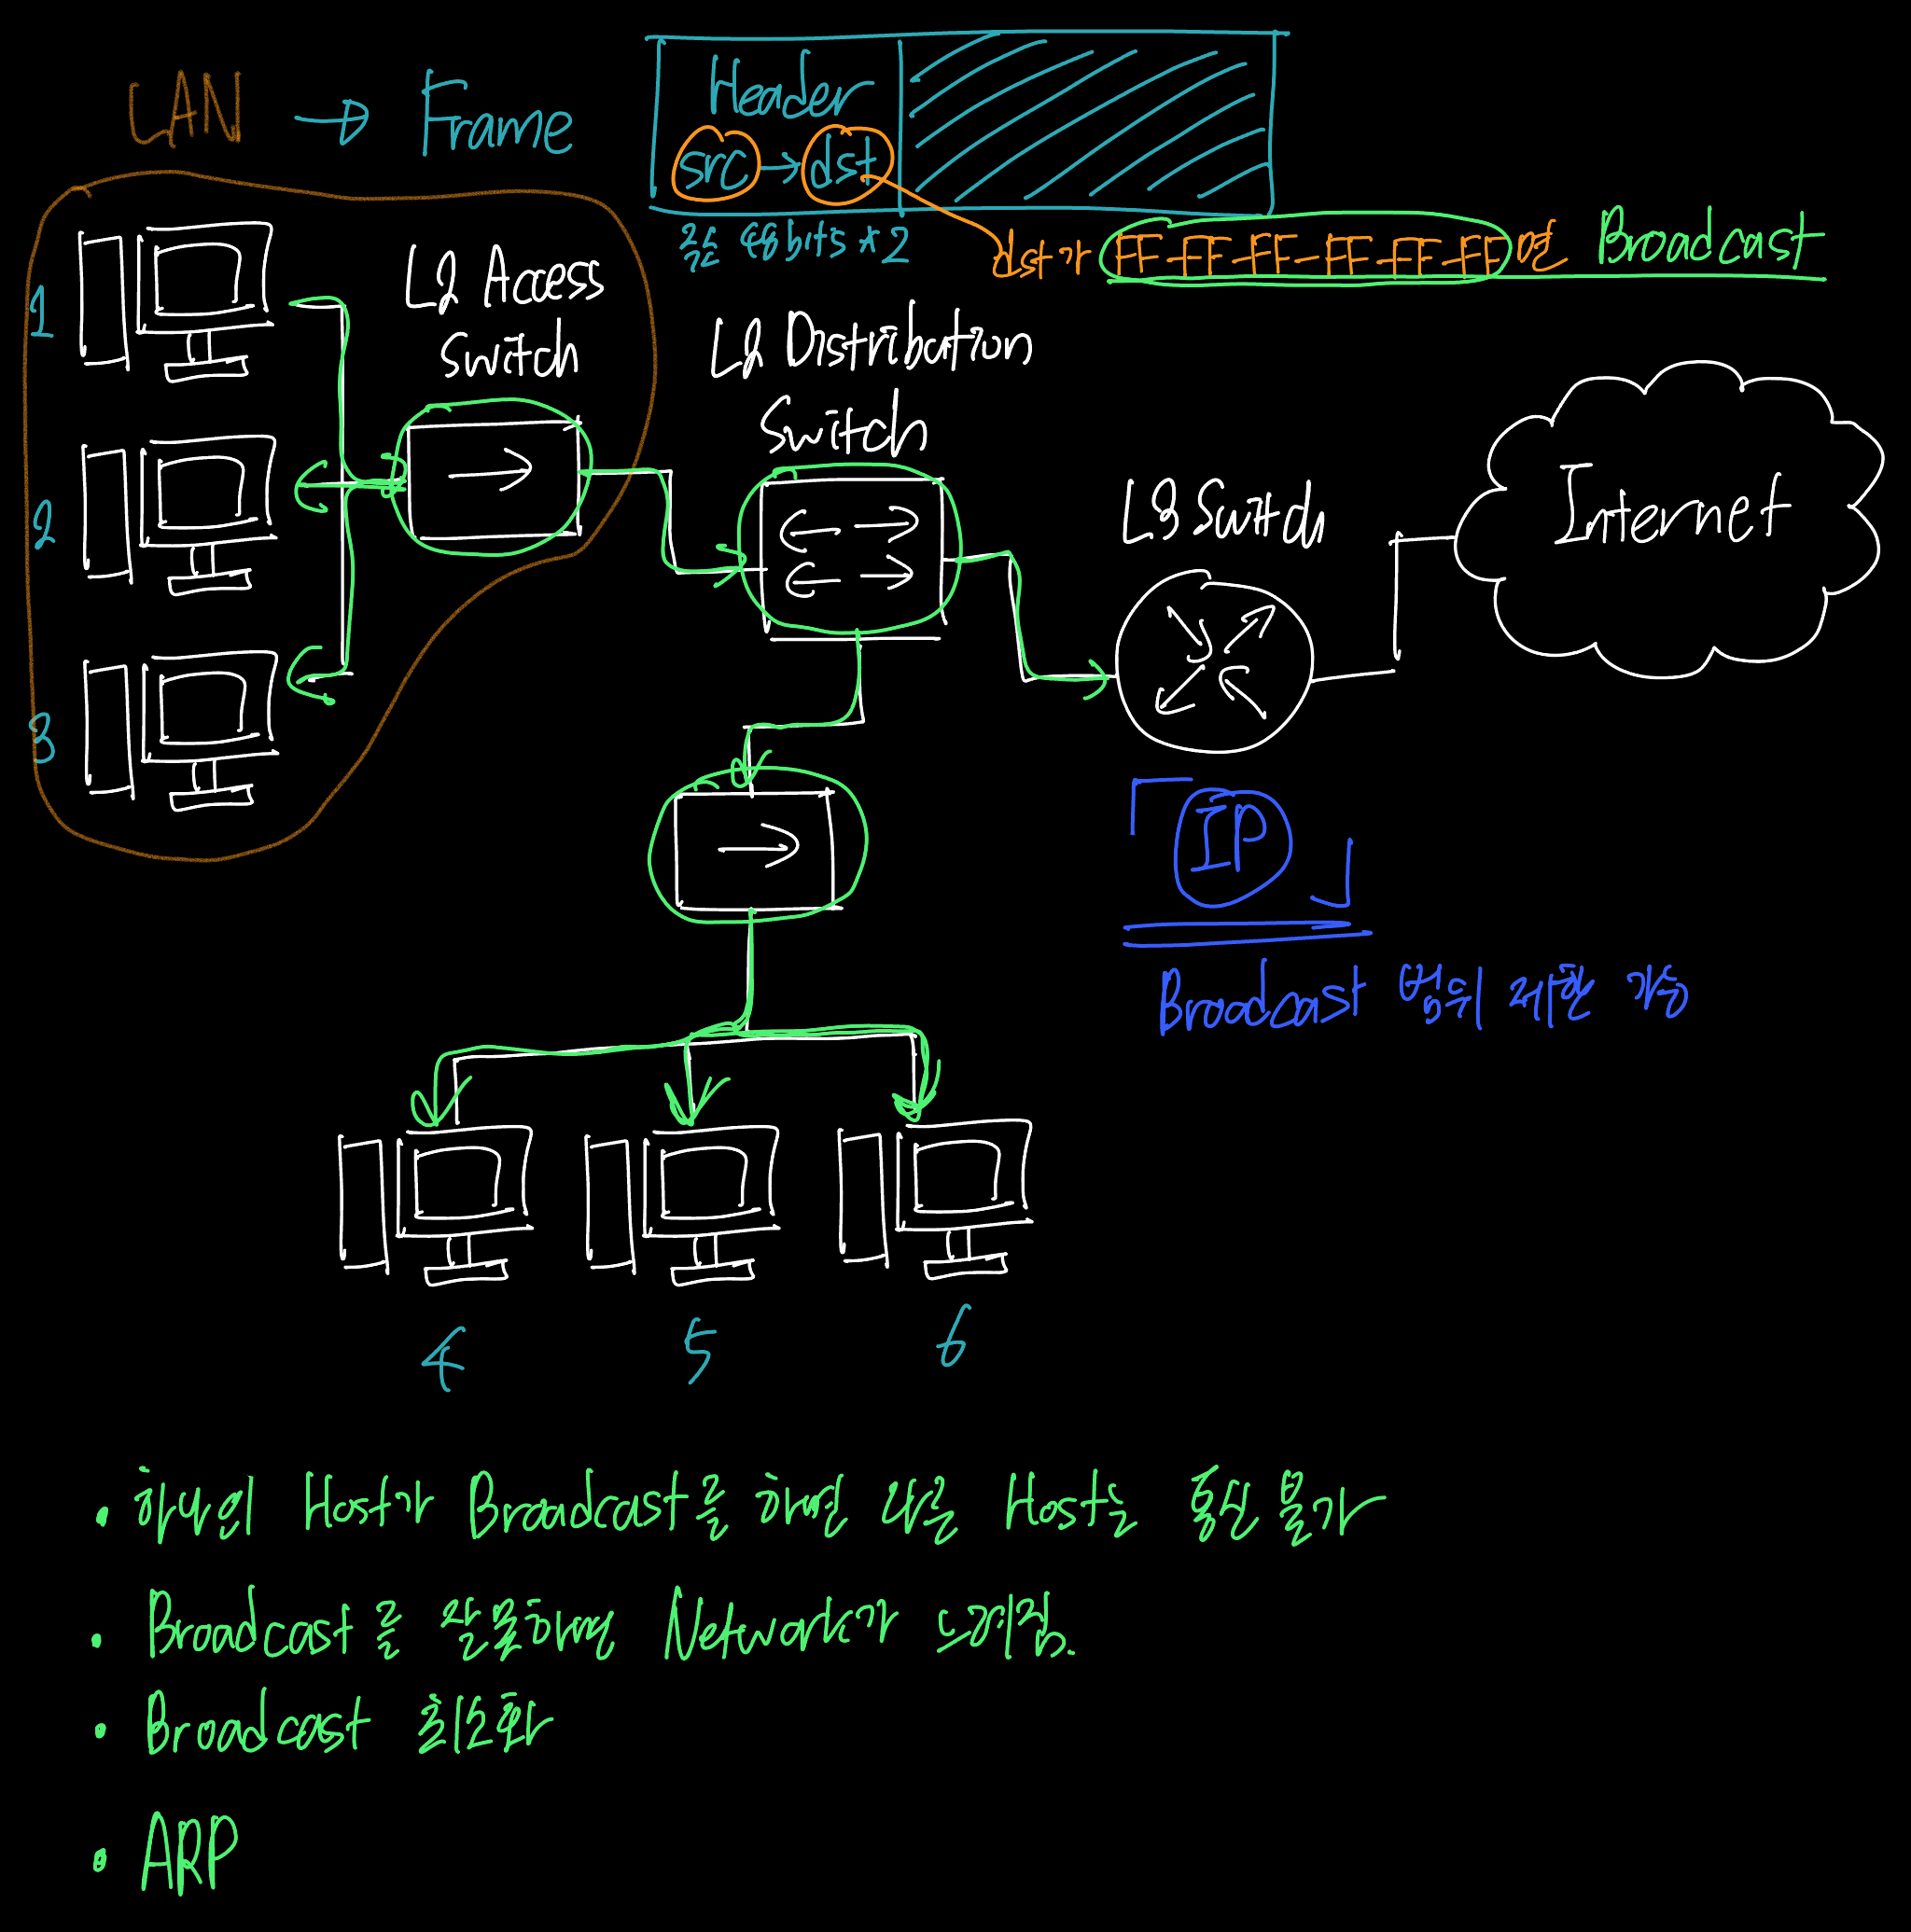 LAN → Frame
Header
src → dst
각 48bits * 2
dst가 FF-FF-FF-FF-FF-FF면 Broadcast
L2 Access
Switch
L2 Distribution
Switch
L3 Switch
Internet
1
2
3
「IP」
Broadcast 범위 제한 가능
4 5 6
• 하나의 Host가 Broadcast를 하면 다른 Host는 통신 불가
• Broadcast를 남발하면 Network가 느려짐.
• Broadcast 최소화
• ARP